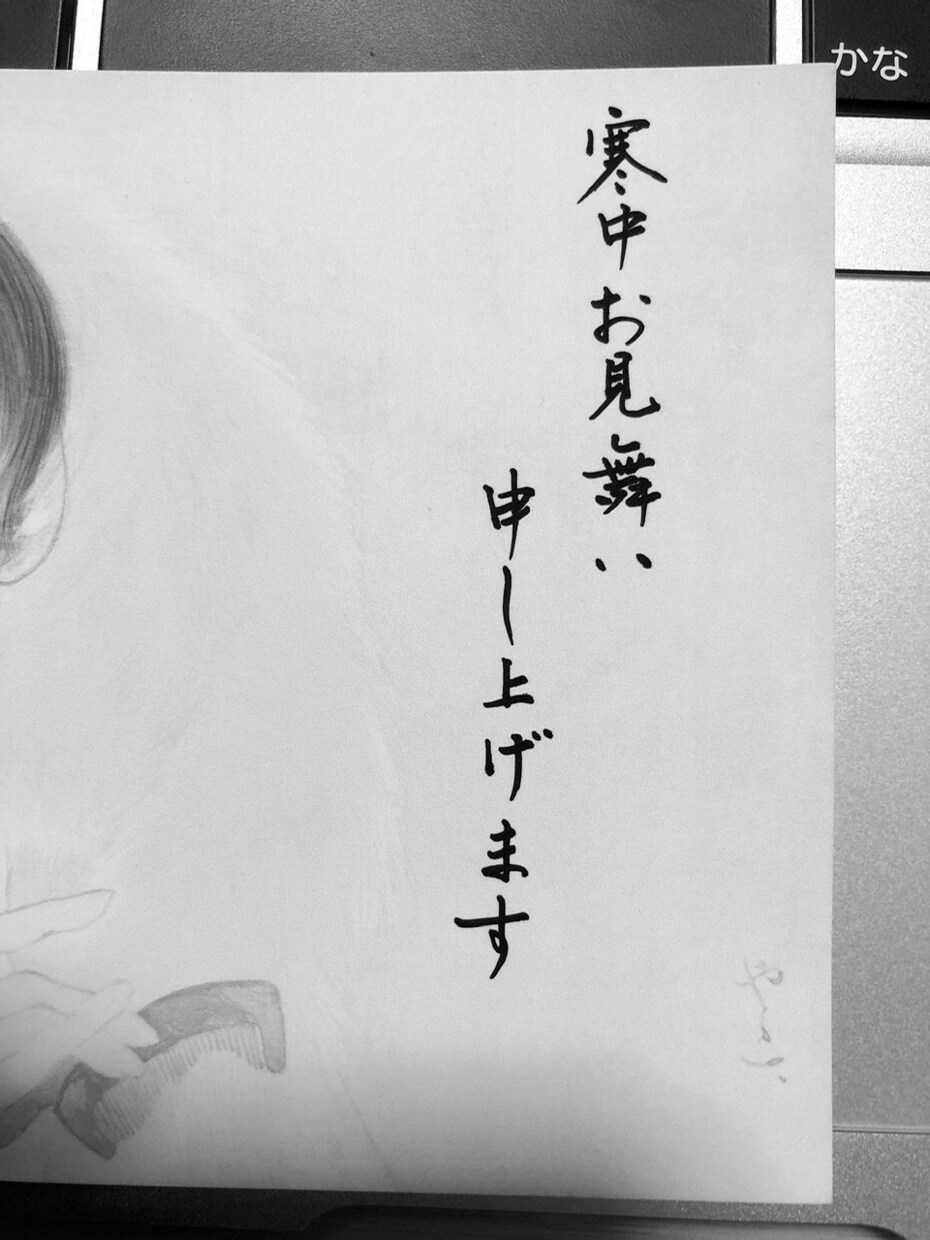 寒中お見舞い
申し上げます
かな